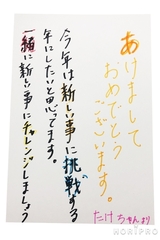 あけまして
おめでとう
ございます。
今年は新しい事に挑戦する
年にしたいと思ってます。
一緒に新しい事にチャレンジしましょう
たけちゃんより
HORIPRO